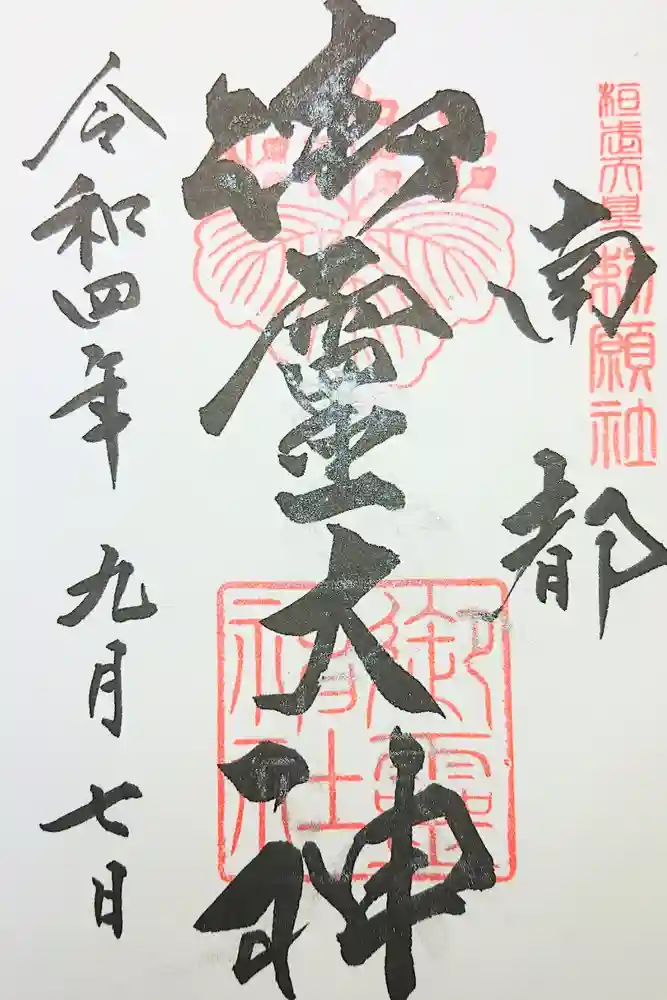 桓武天皇勅願社
南都
御霊大神
御靈神社
令和四年九月七日